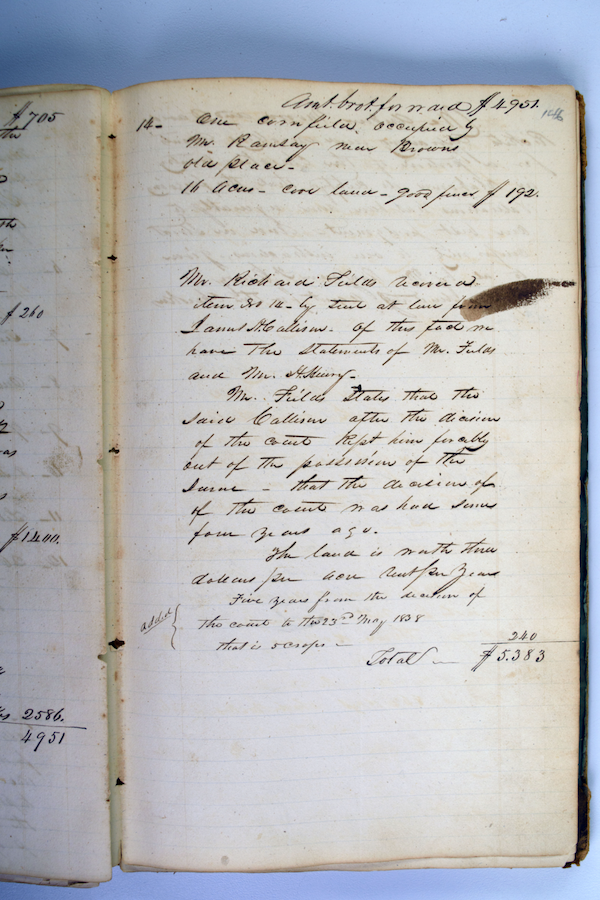 $705
the
th
$260
as
s
$1400.
2586.
4951
Amt. brot. forward $4951.
14 - One cornfield, occupied by
Mr. Ramsay near Browns
old place -
16 Acres - cove land - good fence $192.
Mr. Richard Fields recovered
item No 14 - by suit at law from
James McCallison - Of this fact we
have the statements of Mr. Fields
and Mr. Henry -
Mr. Fields states that the
said Callison after the decision
of the court kept him forcibly
out of the possession of the
same - that the decision of
of the court was had some
four years ago.
The land is worth three
dollars per acre rent per year
added Five years from the decision of
the court to the 23rd May 1838
that is 5 crops - 240
Total $5.383